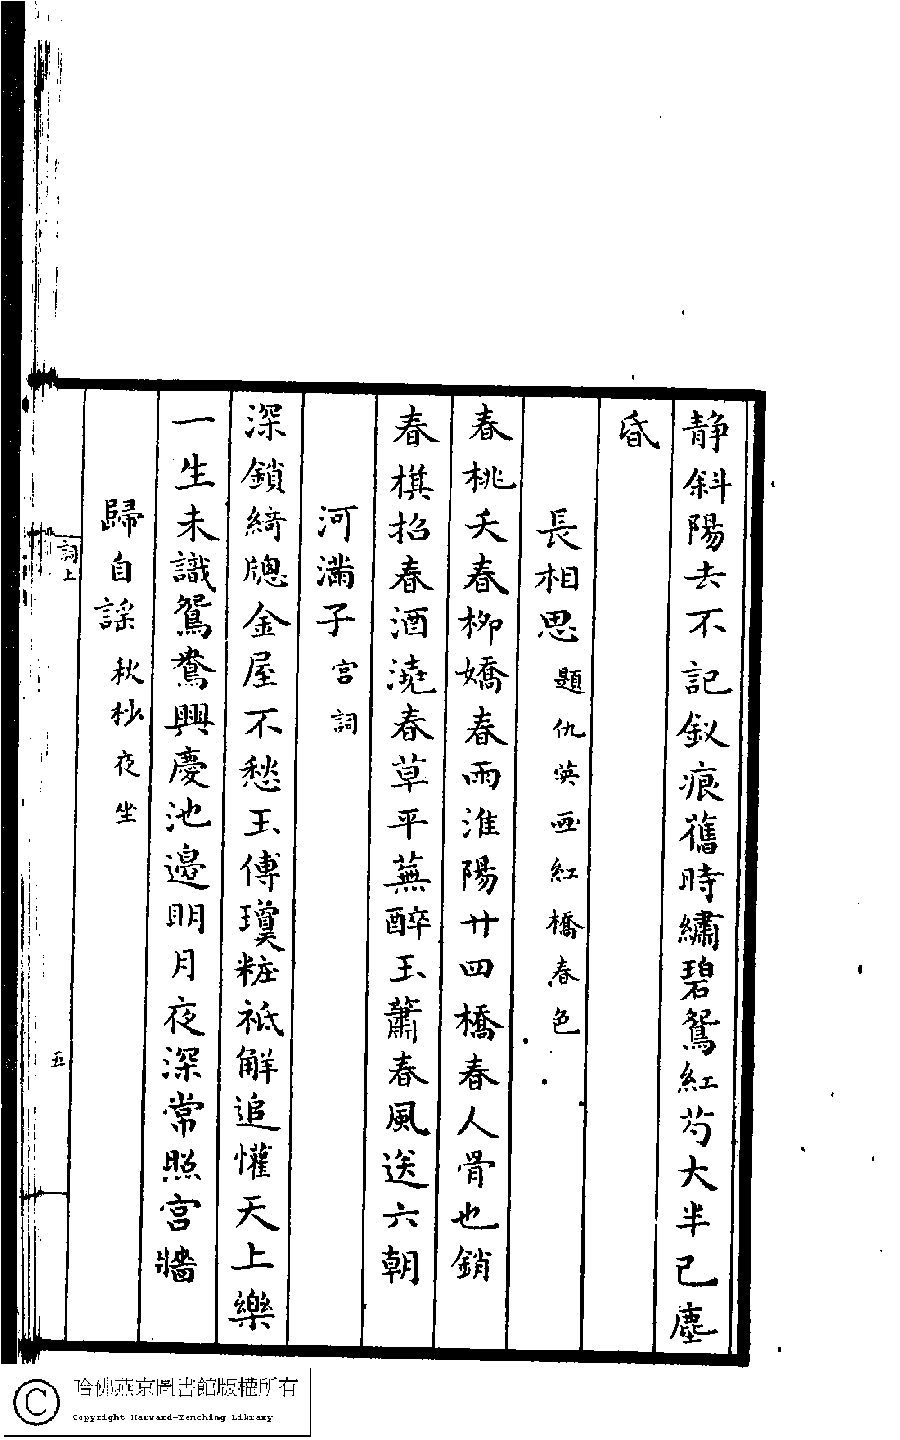 靜斜陽去不記釵痕舊時繡碧鴛紅芍大半已塵
昏
長相思 題仇英画紅橋春色
春桃夭春柳嬌春雨淮陽廿四橋春人骨也銷
春棋招春酒澆春草平蕪醉玉簫春風送六朝
河滿子 宮詞
深鎖綺牕金屋不愁玉傅瓊粧祗解追懽天上樂
一生未識鴛鴦興慶池邊明月夜深常照宮牆
歸自謠 秋杪夜坐
詞上
五
哈佛燕京圖書館版權所有
Copyright Harvard-Yenching Library